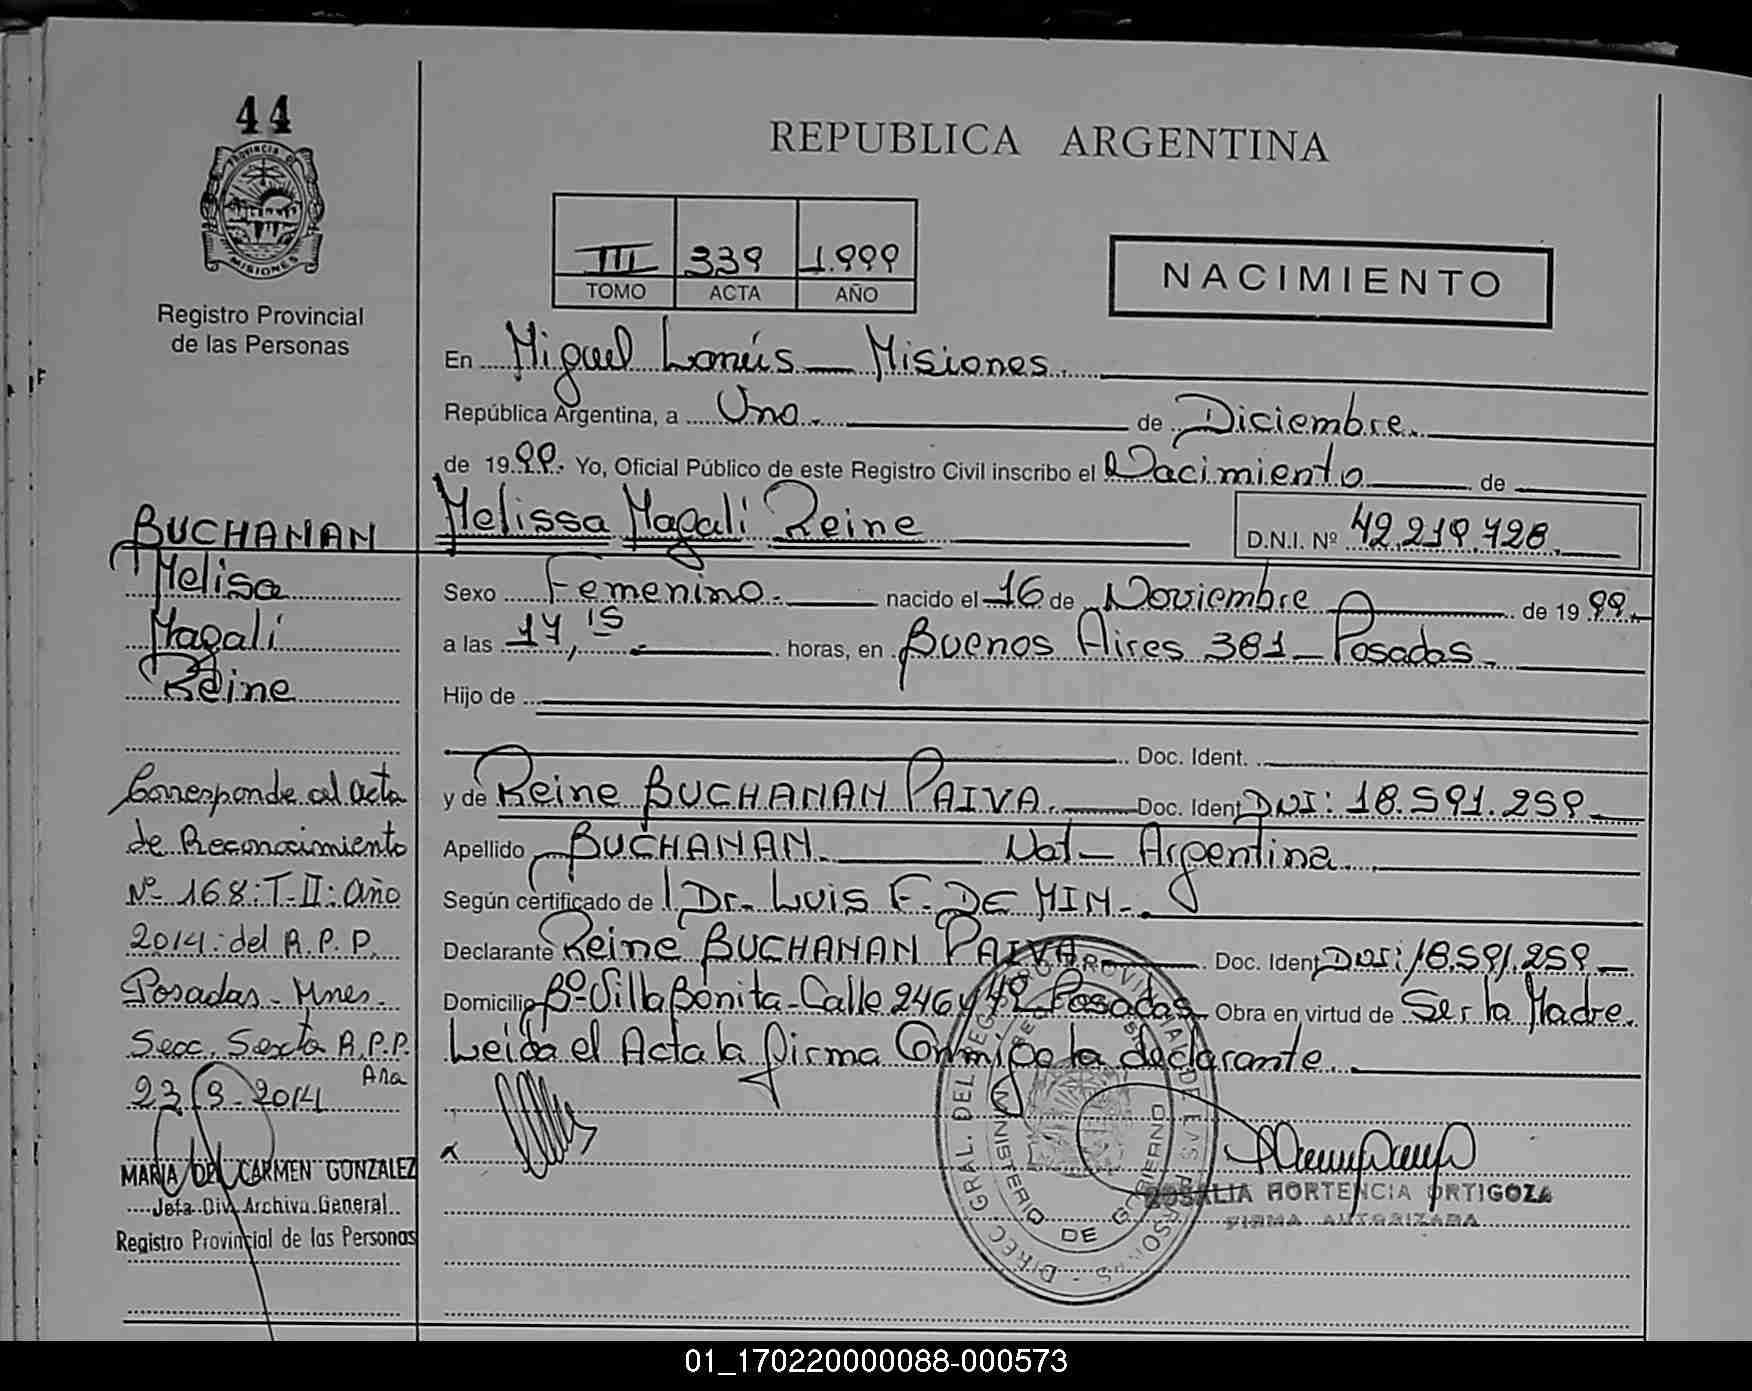 44
PROVINCIA D
MISIONES
Registro Provincial
de las Personas
BUCHANAN
Melisa
Magalí
Reine
Corresponde al acta
de Reconocimiento
Nº 168: T-II: Año
2014: del R.P.P.
Posadas - Mnes.
Secc. Sexta R.P.P.
Ana
23.9.2014
MARIA DEL CARMEN GONZALEZ
Jefa Div. Archivo General
Registro Provincial de las Personas
REPUBLICA ARGENTINA
III 339 1.999
TOMO ACTA AÑO
NACIMIENTO
En Miguel Lanús - Misiones.
República Argentina, a Uno. de Diciembre.
de 1999. Yo, Oficial Público de este Registro Civil inscribo el Nacimiento de
Melissa Magalí Reine D.N.I. Nº 42.219.728.
Sexo Femenino. nacido el 16 de Noviembre de 1999.
a las 17,15. horas, en Buenos Aires 381 - Posadas.
Hijo de
Doc. Ident.
y de Reine BUCHANAN PAIVA. Doc. Ident DNI: 18.591.259
Apellido BUCHANAN. Nat - Argentina.
Según certificado de Dr. Luis F. DE MIN.
Declarante Reine BUCHANAN PAIVA Doc. Ident DNI: 18.591.259
Domicilio Bº Villa Bonita - Calle 246 y 49 Posadas Obra en virtud de Ser la Madre.
Leida el Acta la firma Conmigo la declarante.
x
DIREC. GRAL. DEL REGISTRO PROVINCIAL DE LAS PERSONAS
MINISTERIO DE GOBIERNO
ROSALIA HORTENCIA ORTIGOZA
FIRMA AUTORIZADA
01_170220000088-000573